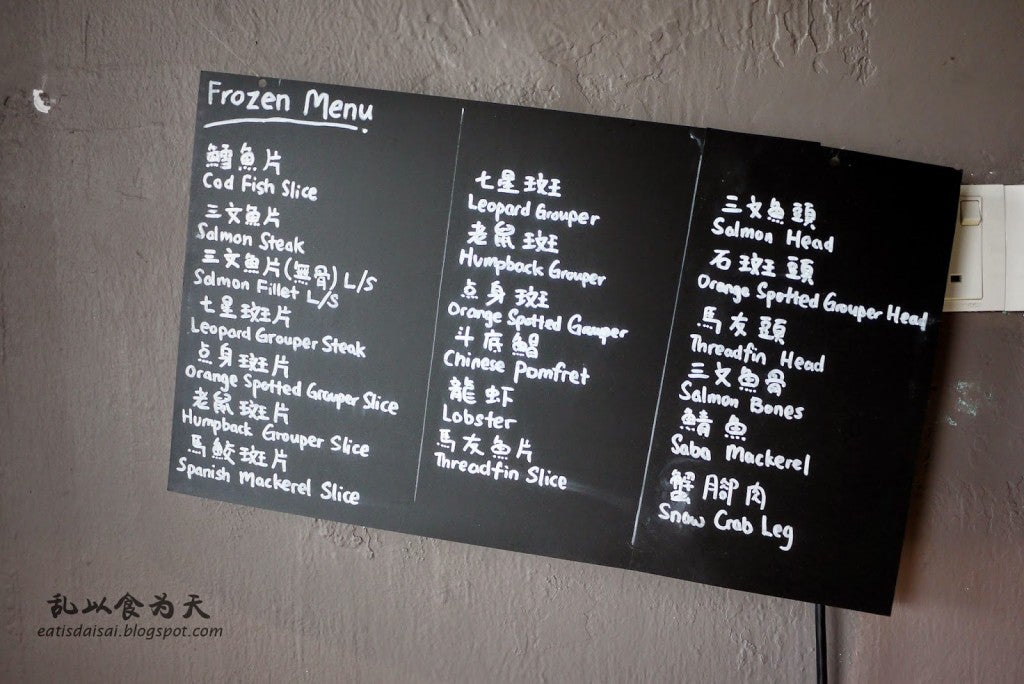 Frozen Menu
鱈魚片
Cod Fish Slice
三文魚片
Salmon Steak
三文魚片(無骨) L/S
Salmon Fillet L/S
七星斑片
Leopard Grouper Steak
点身斑片
Orange Spotted Grouper Slice
老鼠斑片
Humpback Grouper Slice
馬鮫斑片
Spanish Mackerel Slice
七星斑
Leopard Grouper
老鼠斑
Humpback Grouper
点身斑
Orange Spotted Grouper
斗底鯧
Chinese Pomfret
龍虾
Lobster
馬友魚片
Threadfin Slice
三文魚頭
Salmon Head
石斑頭
Orange Spotted Grouper Head
馬友頭
Threadfin Head
三文魚骨
Salmon Bones
鯖魚
Saba Mackerel
蟹腳肉
Snow Crab Leg
乱以食为天
eatisdaisai.blogspot.com